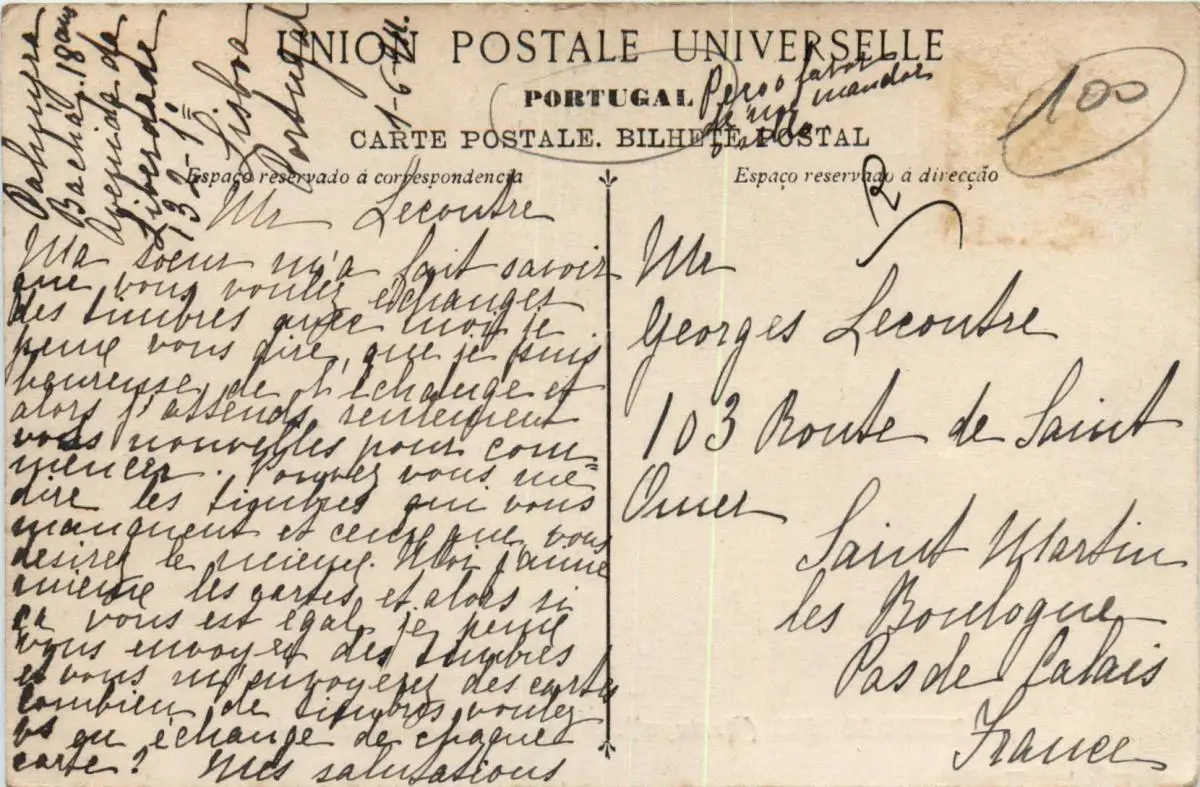 UNION POSTALE UNIVERSELLE
PORTUGAL
CARTE POSTALE. BILHETE POSTAL
Espaço reservado á correspondencia
Espaço reservado á direcção
100
R
Bachiá, 18 ans
Avenida da
Liberdade
132-1º
Lisboa
Portugal
1-6-
Peço o favor
mandar
Mr Lecoutre
Ma soeur m'a fait savoir
que vous voulez échanger
des timbres avec moi, je
peme vous dire, que je suis
heureuse de l'échange et
alors j'attends seulement
vous nouvelles pour com=
mencer. Pouvez vous me
dire les timbres qui vous
manquent et ceux que vous
desirez le mieux. Moi j'aime
mieux les cartes, et alors si
ça vous est égal, je peme
vous envoyer des timbres
et vous m'envoyerez des cartes
Combien de timbres voulez
vs qu échange de chaque
carte? Mes salutations
Mr
Georges Lecoutre
103 Route de Saint
Omer
Saint Martin
les Boulogne
Pas de Calais
France